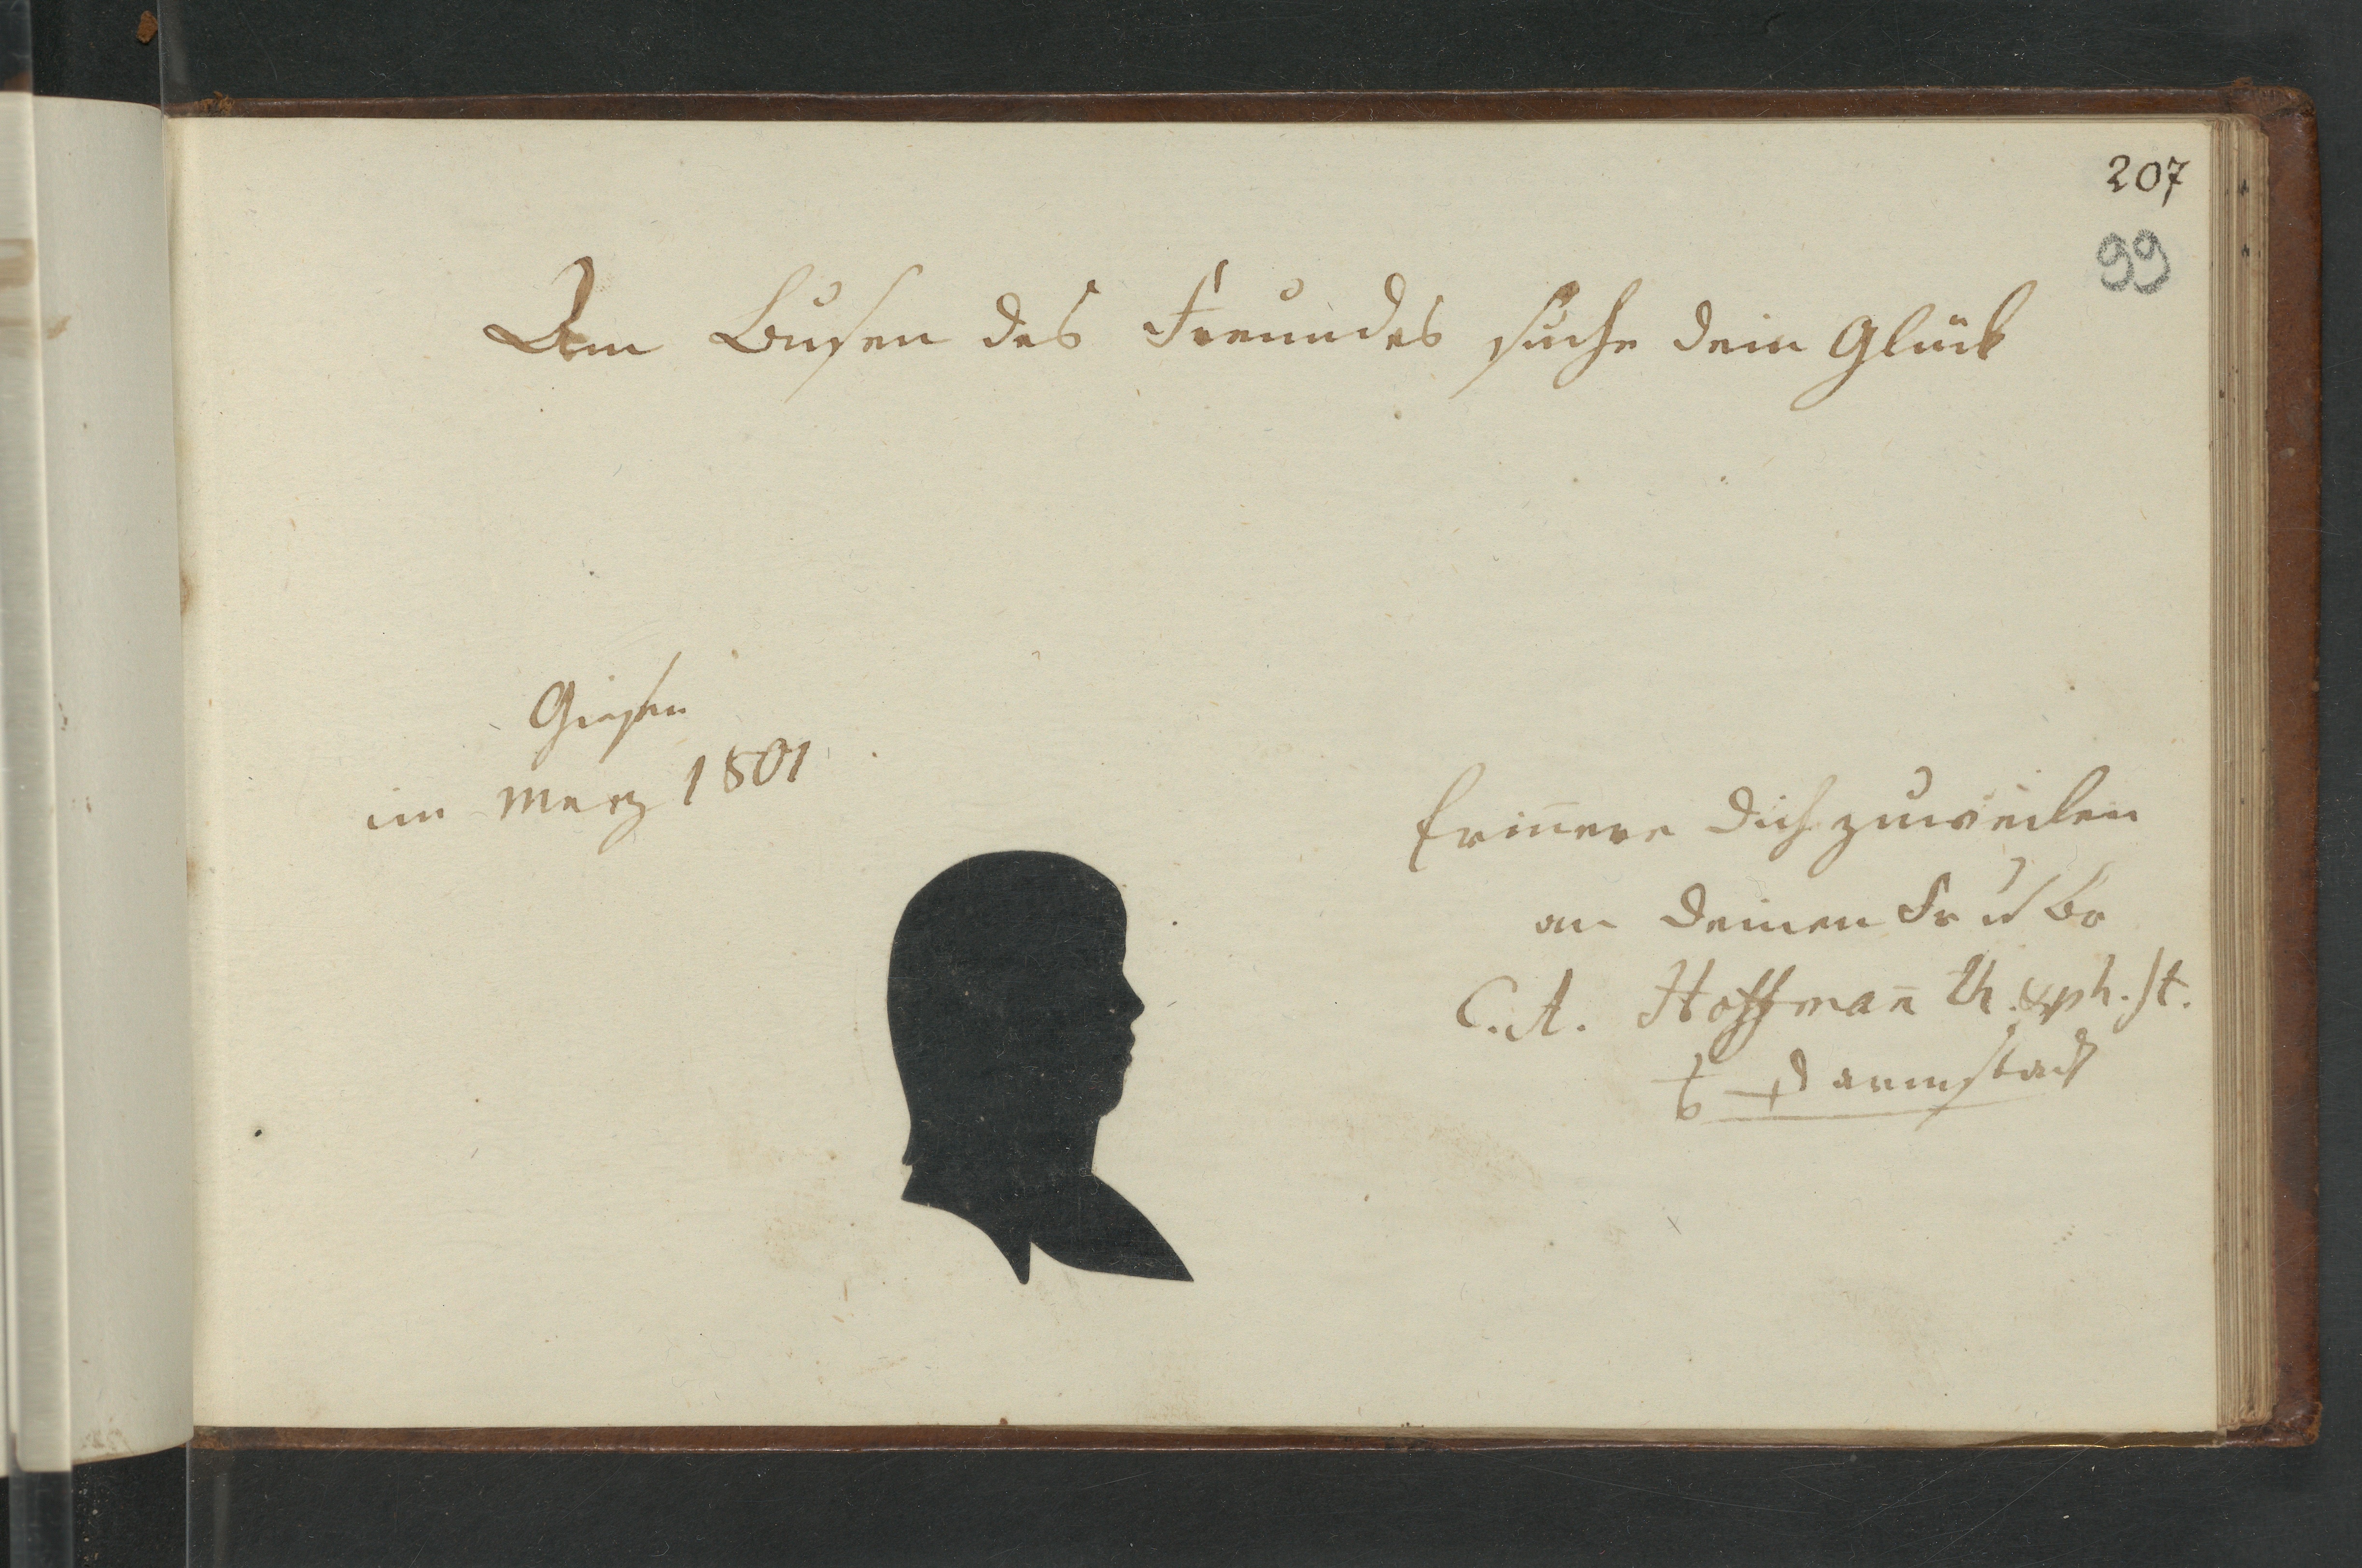 207
99
Am Busen des Freundes suche dein Glük
Giesen
im Merz 1801
Erinnere dich zuweilen
an deinen Fr u Br
C. A. Hoffman̄ th. & ph. st.
Darmstadt